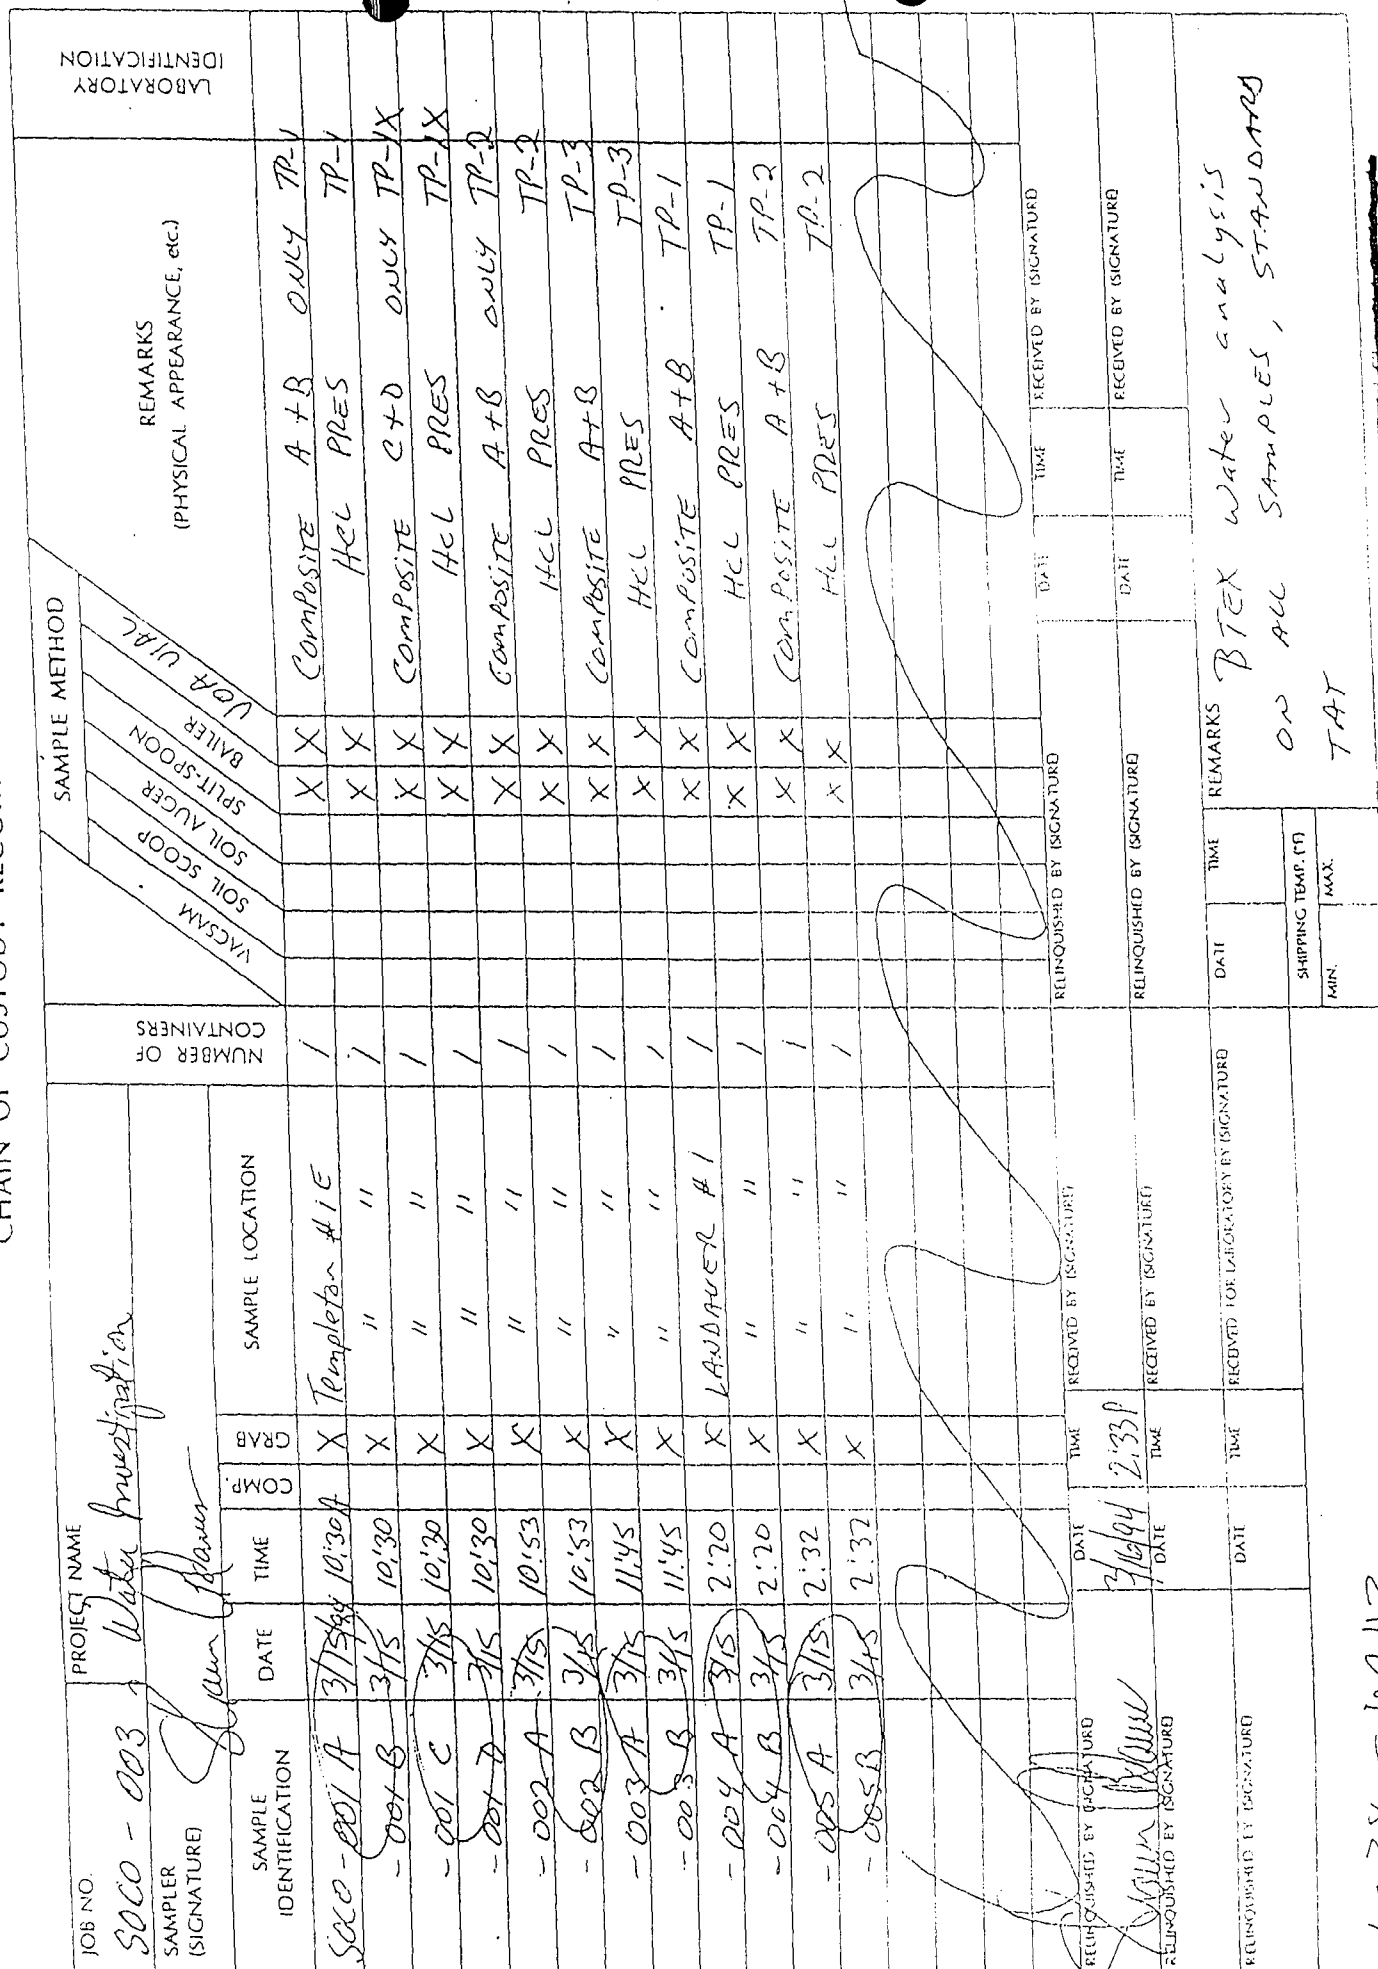 CHAIN OF CUSTODY RECORD
JOB NO.
SOCO - 003
PROJECT NAME
Water Investigation
SAMPLER
(SIGNATURE)
SAMPLE
IDENTIFICATION
DATE
TIME
COMP.
GRAB
SAMPLE LOCATION
NUMBER OF
CONTAINERS
SAMPLE METHOD
VACSAM
SOIL SCOOP
SOIL AUGER
SPLIT-SPOON
BAILER
VOA VIAL
REMARKS
(PHYSICAL APPEARANCE, etc.)
LABORATORY
IDENTIFICATION
SOCO - 001 A 3/15/94 10:30A X Templeton #1E 1 X X COMPOSITE A + B ONLY TP-1
- 001 B 3/15 10:30 X " " 1 X X HCL PRES TP-1
- 001 C 3/15 10:30 X " " 1 X X COMPOSITE C+D ONLY TP-1X
- 001 D 3/15 10:30 X " " 1 X X HCL PRES TP-1X
- 002 A 3/15 10:53 X " " 1 X X COMPOSITE A+B ONLY TP-2
- 002 B 3/15 10:53 X " " 1 X X HCL PRES TP-2
- 003 A 3/15 11:45 X " " 1 X X COMPOSITE A+B TP-3
- 003 B 3/15 11:45 X " " 1 X X HCL PRES TP-3
- 004 A 3/15 2:20 X LANDAUER #1 1 X X COMPOSITE A+B TP-1
- 004 B 3/15 2:20 X " " 1 X X HCL PRES TP-1
- 005 A 3/15 2:32 X " " 1 X X COMPOSITE A+B TP-2
- 005 B 3/15 2:32 X " " 1 X X HCL PRES TP-2
RELINQUISHED BY (SIGNATURE) DATE TIME RECEIVED BY (SIGNATURE) RELINQUISHED BY (SIGNATURE) DATE TIME RECEIVED BY (SIGNATURE)
3/16/94 2:33P
RELINQUISHED BY (SIGNATURE) DATE TIME RECEIVED BY (SIGNATURE) RELINQUISHED BY (SIGNATURE) DATE TIME RECEIVED BY (SIGNATURE)
RELINQUISHED BY (SIGNATURE) DATE TIME RECEIVED FOR LABORATORY BY (SIGNATURE) DATE TIME REMARKS
BTEX Water analysis
ON ALL SAMPLES, STANDARD
TAT
SHIPPING TEMP. (°F)
MIN. MAX.